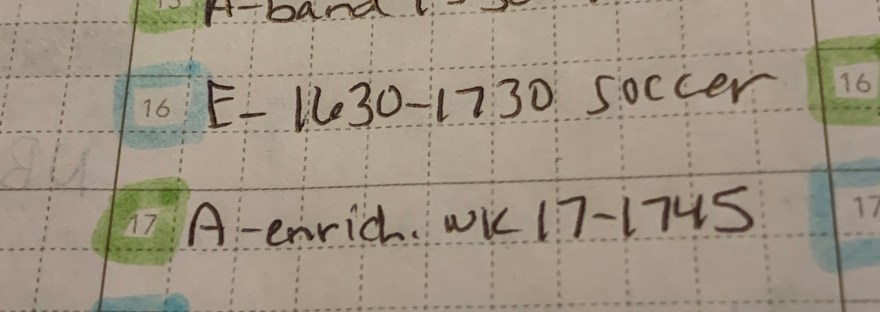 A-band
16 E- 1630-1730 soccer 16
17 A-enrich. wk 17-1745 17